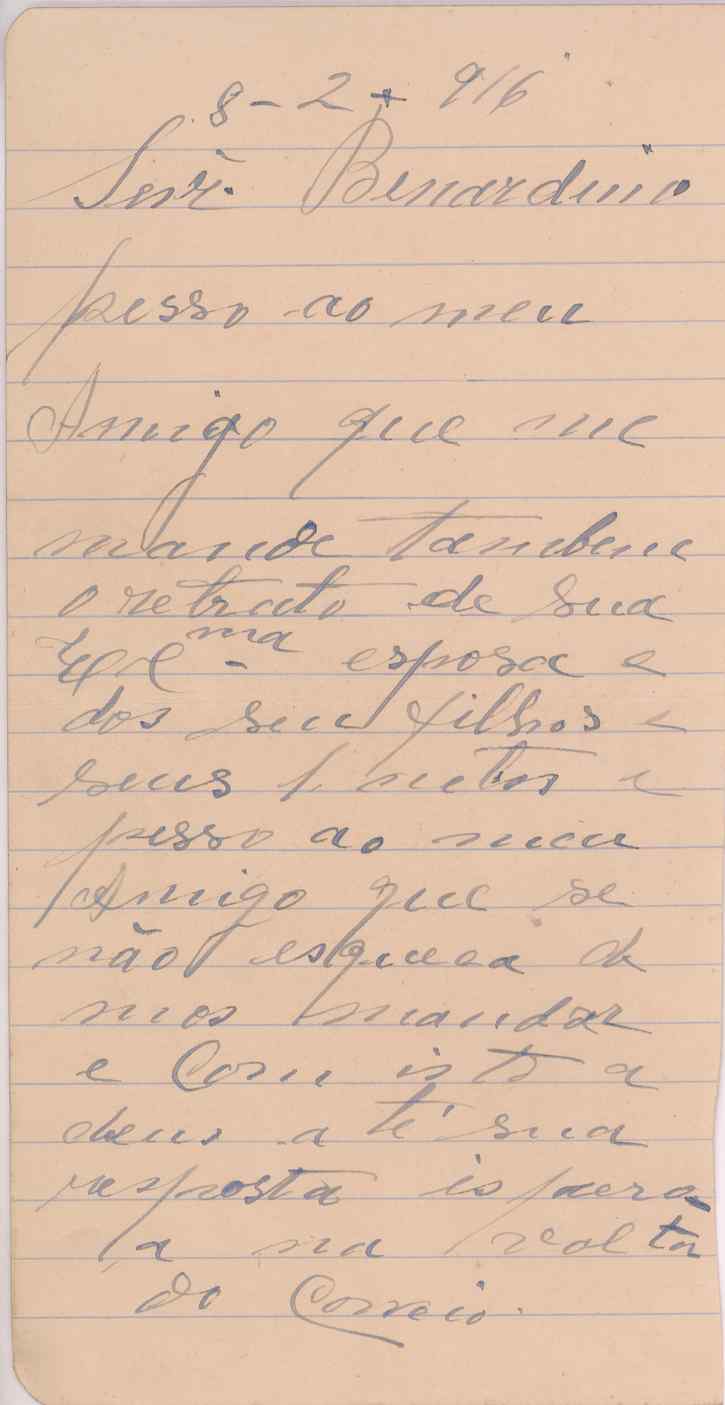 8-2+916
Snr. Benardino
pesso ao meu
Amigo que me
mande tambem
o retrato de sua
Exc ma esposa e
dos seu filhos e
seus netos e
pesso ao meu
Amigo que se
não esqueca de
mos mandar
e Com isto a
deus a té sua
resposta ispaera
a na volta
do Correio.